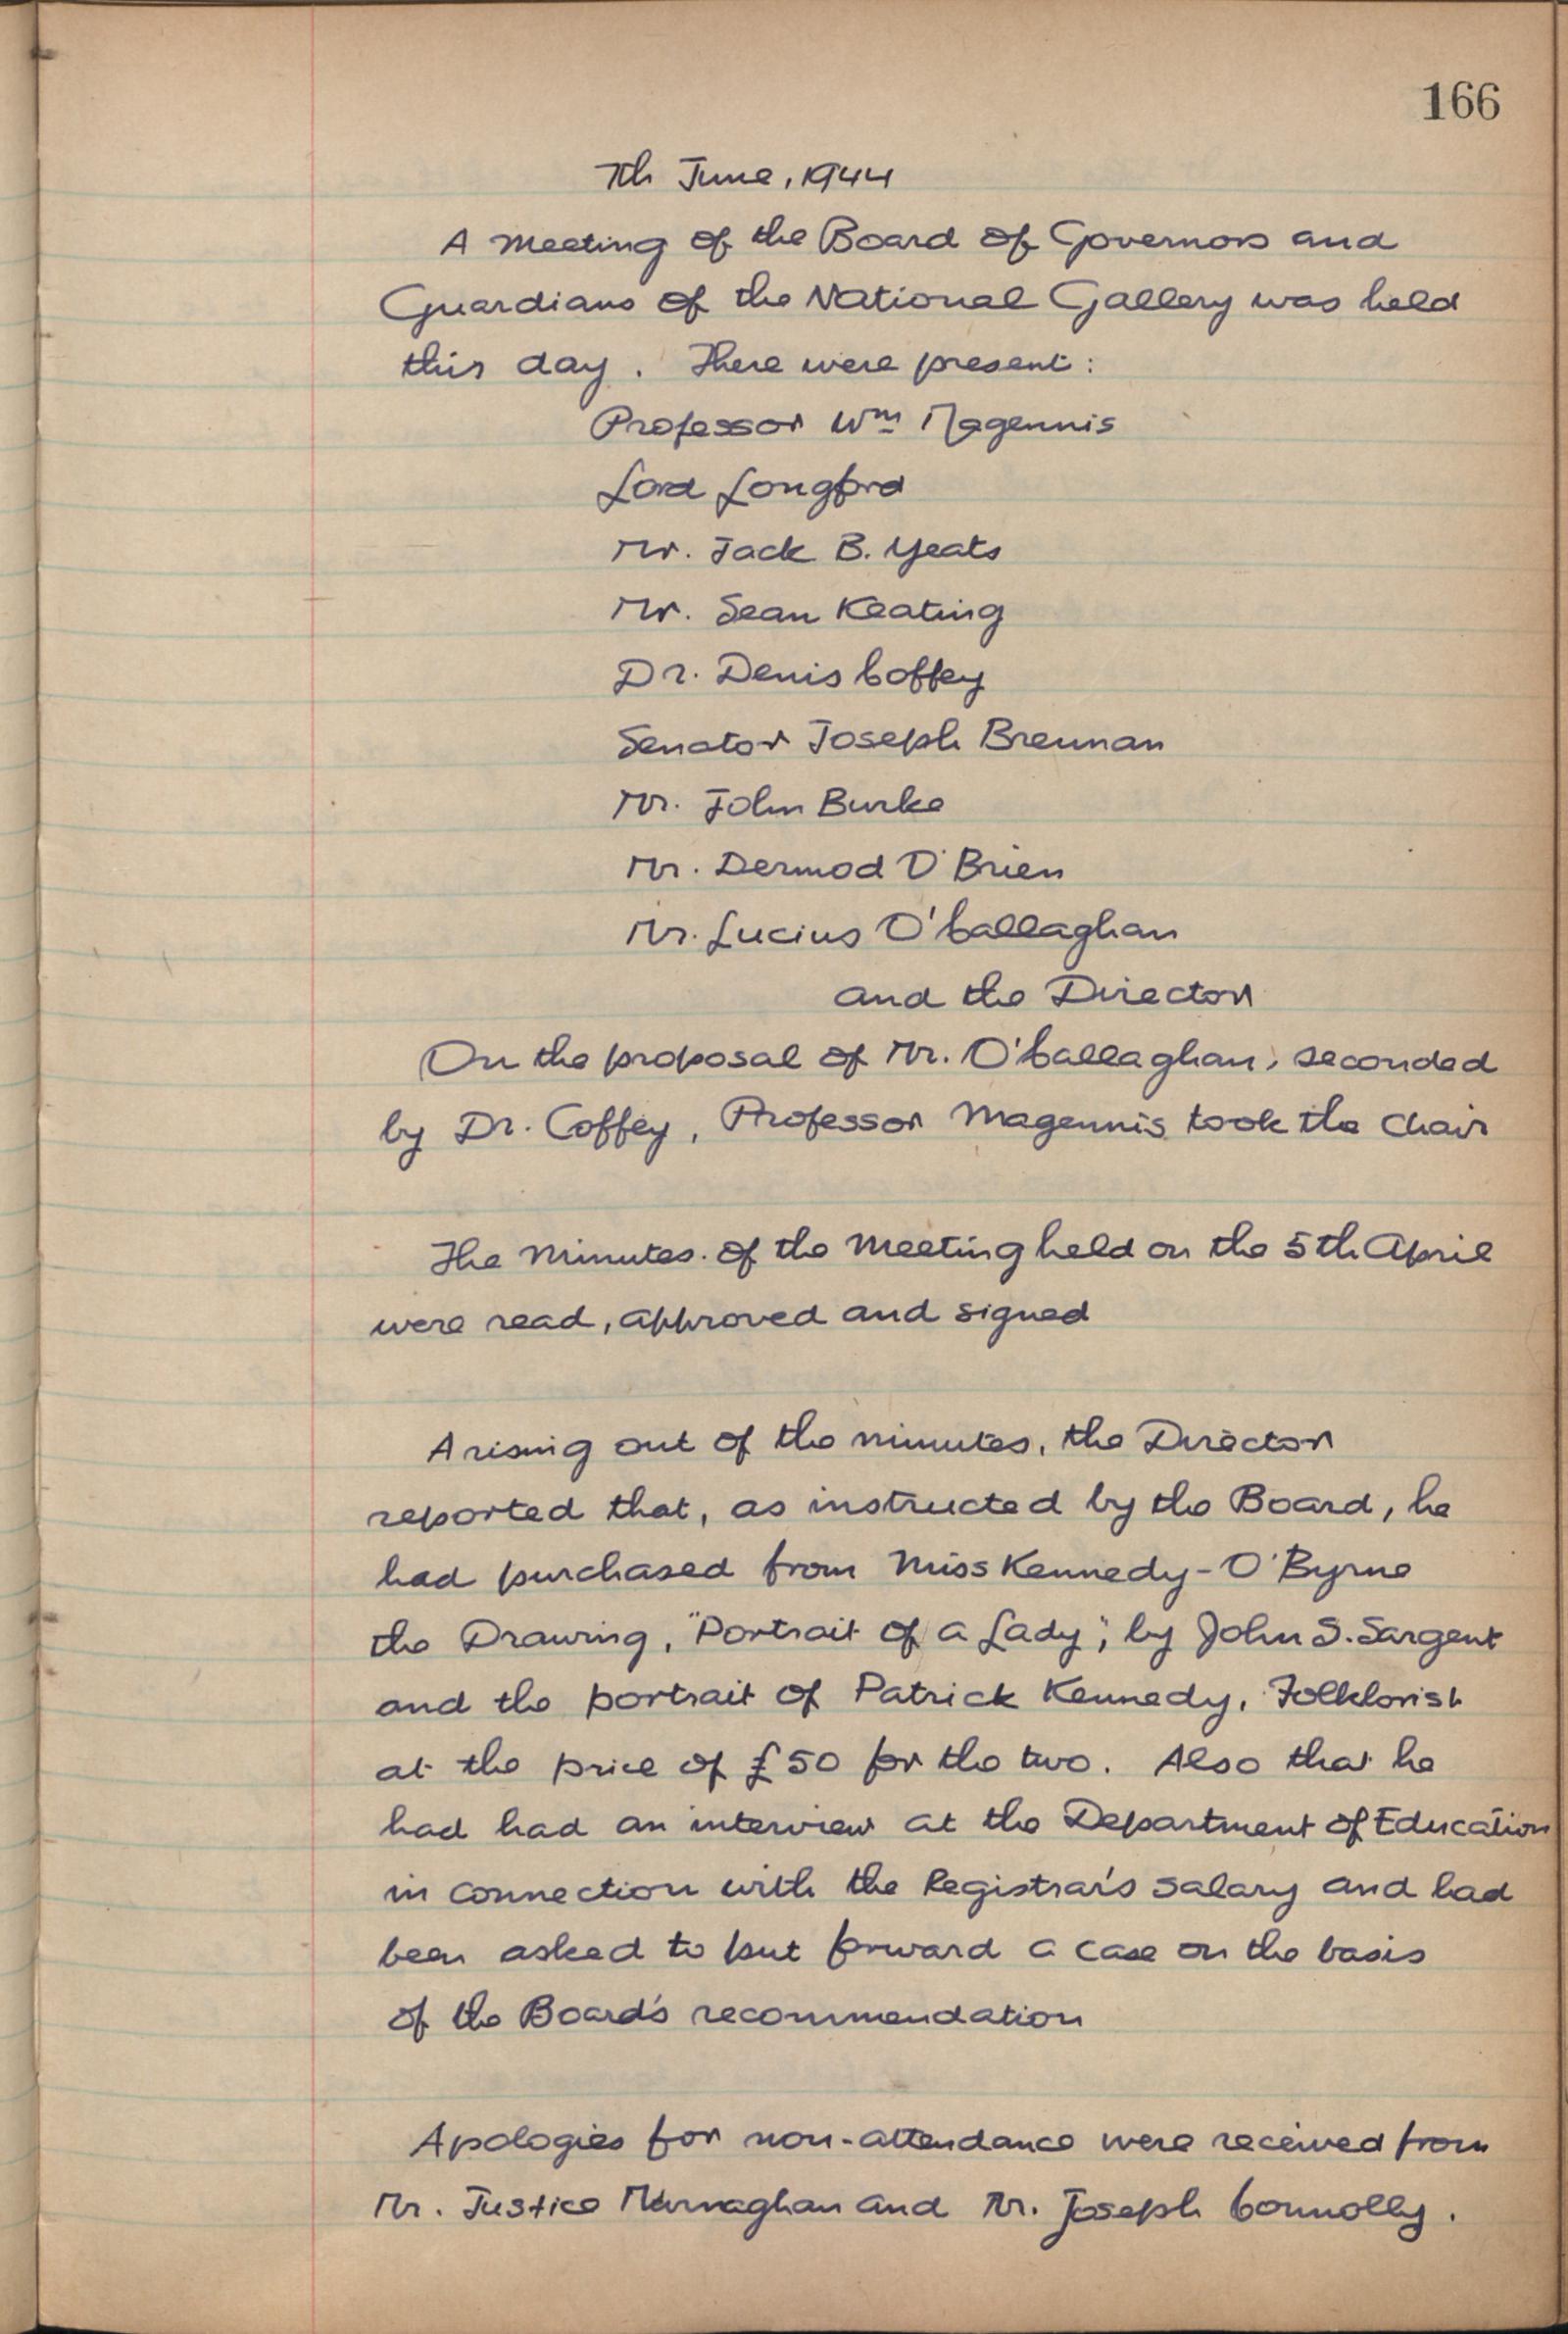 166
7th June, 1944
A Meeting of the Board of Governors and
Guardians of the National Gallery was held
this day. There were present:
Professor Wm Magennis
Lord Longford
Mr. Jack B. Yeats
Mr. Sean Keating
Dr. Denis Coffey
Senator Joseph Brennan
Mr. John Burke
Mr. Dermod O'Brien
Mr. Lucius O'Callaghan
and the Director
On the proposal of Mr. O'Callaghan, seconded
by Dr. Coffey, Professor Magennis took the Chair
The Minutes of the Meeting held on the 5th April
were read, approved and signed
Arising out of the minutes, the Director
reported that, as instructed by the Board, he
had purchased from Miss Kennedy-O'Byrne
the Drawing, "Portrait of a Lady", by John S. Sargent
and the portrait of Patrick Kennedy, Folklorist
at the price of £50 for the two. Also that he
had had an interview at the Department of Education
in connection with the Registrar's salary and had
been asked to put forward a case on the basis
of the Board's recommendation
Apologies for non-attendance were received from
Mr. Justice Murnaghan and Mr. Joseph Connolly.